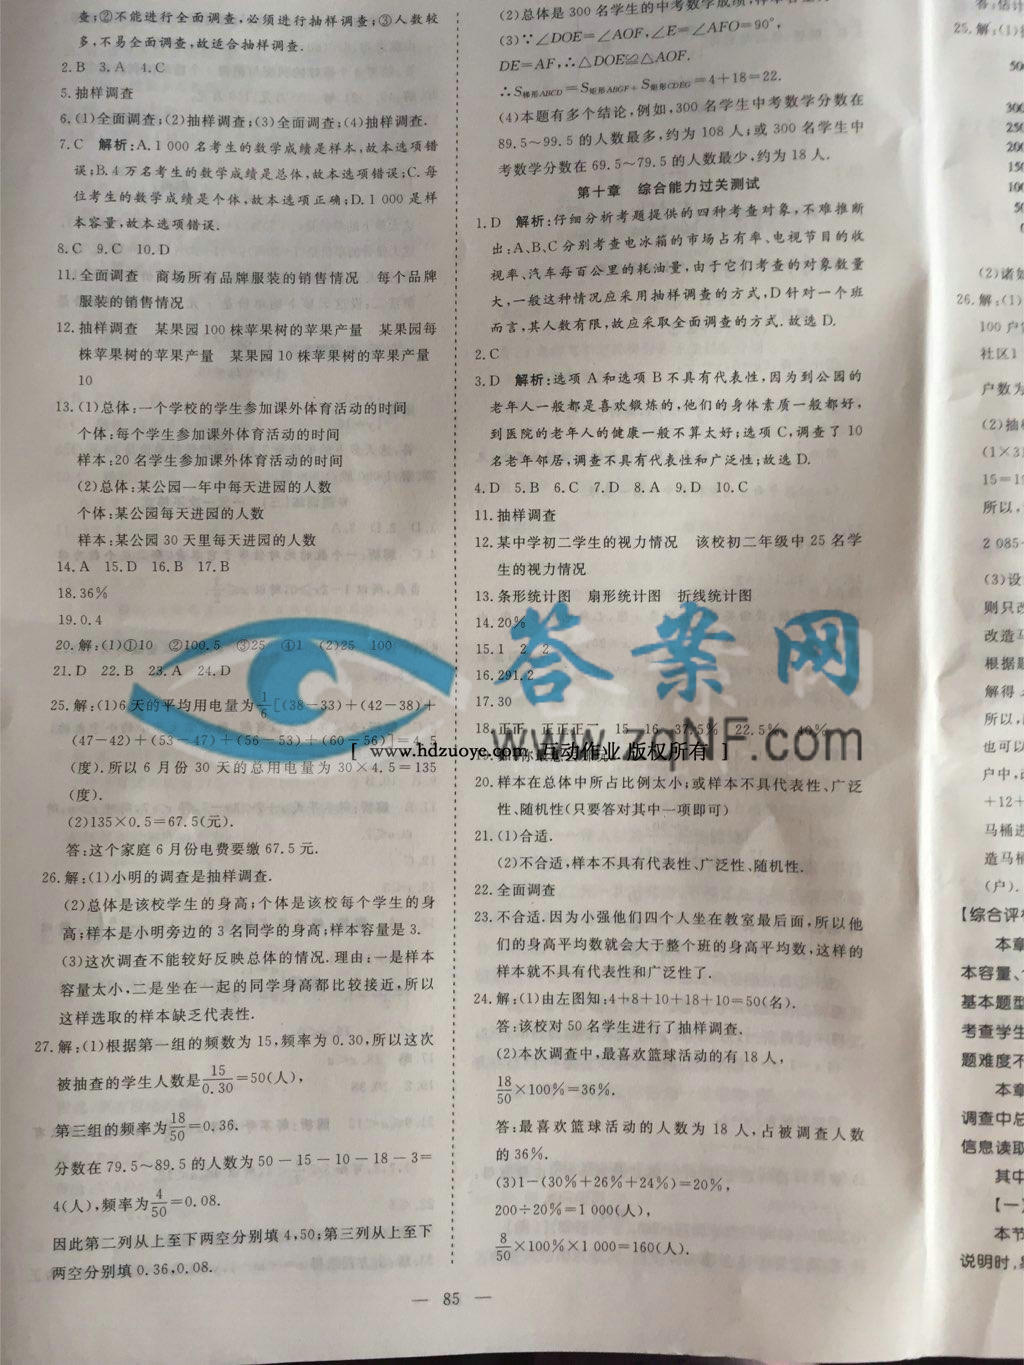 查;②不能进行全面调查,必须进行抽样调查;③人数较
多,不易全面调查,故适合抽样调查.
2.B 3.A 4.C
5.抽样调查
6.(1)全面调查;(2)抽样调查;(3)全面调查;(4)抽样调查.
7.C 解析:A.1 000名考生的数学成绩是样本,故本选项错
误;B.4万名考生的数学成绩是总体,故本选项错误;C.每
位考生的数学成绩是个体,故本选项正确;D.1 000是样
本容量,故本选项错误.
8.C 9.C 10.D
11.全面调查 商场所有品牌服装的销售情况 每个品牌
服装的销售情况
12.抽样调查 某果园100株苹果树的苹果产量 某果园每
株苹果树的苹果产量 某果园10株苹果树的苹果产量
10
13.(1)总体:一个学校的学生参加课外体育活动的时间
个体:每个学生参加课外体育活动的时间
样本:20名学生参加课外体育活动的时间
(2)总体:某公园一年中每天进园的人数
个体:某公园每天进园的人数
样本:某公园30天里每天进园的人数
14.A 15.D 16.B 17.B
18.36%
19.0.4
20.解:(1)①10 ②100.5 ③25 ④1 (2)25 100
21.D 22.B 23.A 24.D
25.解:(1)6天的平均用电量为1/6[(38-33)+(42-38)+
(47-42)+(53-47)+(56-53)+(60-56)]=4.5
(度).所以6月份30天的总用电量为30×4.5=135
(度).
(2)135×0.5=67.5(元).
答:这个家庭6月份电费要缴67.5元.
26.解:(1)小明的调查是抽样调查.
(2)总体是该校学生的身高;个体是该校每个学生的身
高;样本是小明旁边的3名同学的身高;样本容量是3.
(3)这次调查不能较好反映总体的情况.理由:一是样本
容量太小,二是坐在一起的同学身高都比较接近,所以
这样选取的样本缺乏代表性.
27.解:(1)根据第一组的频数为15,频率为0.30,所以这次
被抽查的学生人数是15/0.30=50(人),
第三组的频率为18/50=0.36.
分数在79.5~89.5的人数为50-15-10-18-3=
4(人),频率为4/50=0.08.
因此第二列从上至下两空分别填4,50;第三列从上至下
两空分别填0.36,0.08.
(2)总体是300名学生的中考数学成绩,
(3)∵∠DOE=∠AOF,∠E=∠AFO=90°,
DE=AF,∴△DOE≌△AOF.
∴S梯形ABCD=S矩形ABGF+S矩形CDEG=4+18=22.
(4)本题有多个结论,例如,300名学生中考数学分数在
89.5~99.5的人数最多,约为108人;或300名学生中
考数学分数在69.5~79.5的人数最少,约为18人.
第十章 综合能力过关测试
1.D 解析:仔细分析考题提供的四种考查对象,不难推断
出:A、B、C分别考查电冰箱的市场占有率、电视节目的收
视率、汽车每百公里的耗油量,由于它们考查的对象数量
大,一般这种情况应采用抽样调查的方式,D针对一个班
而言,其人数有限,故应采取全面调查的方式.故选D.
2.C
3.D 解析:选项A和选项B不具有代表性,因为到公园的
老年人一般都是喜欢锻炼的,他们的身体素质一般都好,
到医院的老年人的健康一般不算太好;选项C,调查了10
名老年邻居,调查不具有代表性和广泛性;故选D.
4.D 5.B 6.C 7.D 8.A 9.D 10.C
11.抽样调查
12.某中学初二学生的视力情况 该校初二年级中25名学
生的视力情况
13.条形统计图 扇形统计图 折线统计图
14.20%
15.1 2 2
16.291.2
17.30
18.正正 正正正 15 16 37.5% 22.5% 40%
20.样本在总体中所占比例太小;或样本不具代表性、广泛
性、随机性(只要答对其中一项即可)
21.(1)合适.
(2)不合适,样本不具有代表性、广泛性、随机性.
22.全面调查
23.不合适.因为小强他们四个人坐在教室最后面,所以他
们的身高平均数就会大于整个班的身高平均数,这样的
样本就不具有代表性和广泛性了.
24.解:(1)由左图知:4+8+10+18+10=50(名).
答:该校对50名学生进行了抽样调查、
(2)本次调查中,最喜欢篮球活动的有18人,
18/50×100%=36%.
答:最喜欢篮球活动的人数为18人,占被调查人数
的36%.
(3)1-(30%+26%+24%)=20%,
200÷20%=1 000(人),
8/50×100%×1 000=160(人).
— 85 —
答:估计
25.解:(1)
500
300
250
200
150
100
50
0
(2)诸如
26.解:(1)
100户
社区1
户数为
(2)抽样
(1×31
15=1
所以,
2 085
(3)设
则只改
改造马
根据题
解得
所以,
也可以
户中,
+12+
马桶进
造马桶
(户).
【综合评
本章
本容量、
基本题型
考查学生
题难度不
本章
调查中总
信息读取
其中
【一
本节
说明时,
答案网
www.zqNF.com
[ www.hdzuoye.com 互动作业 版权所有 ]